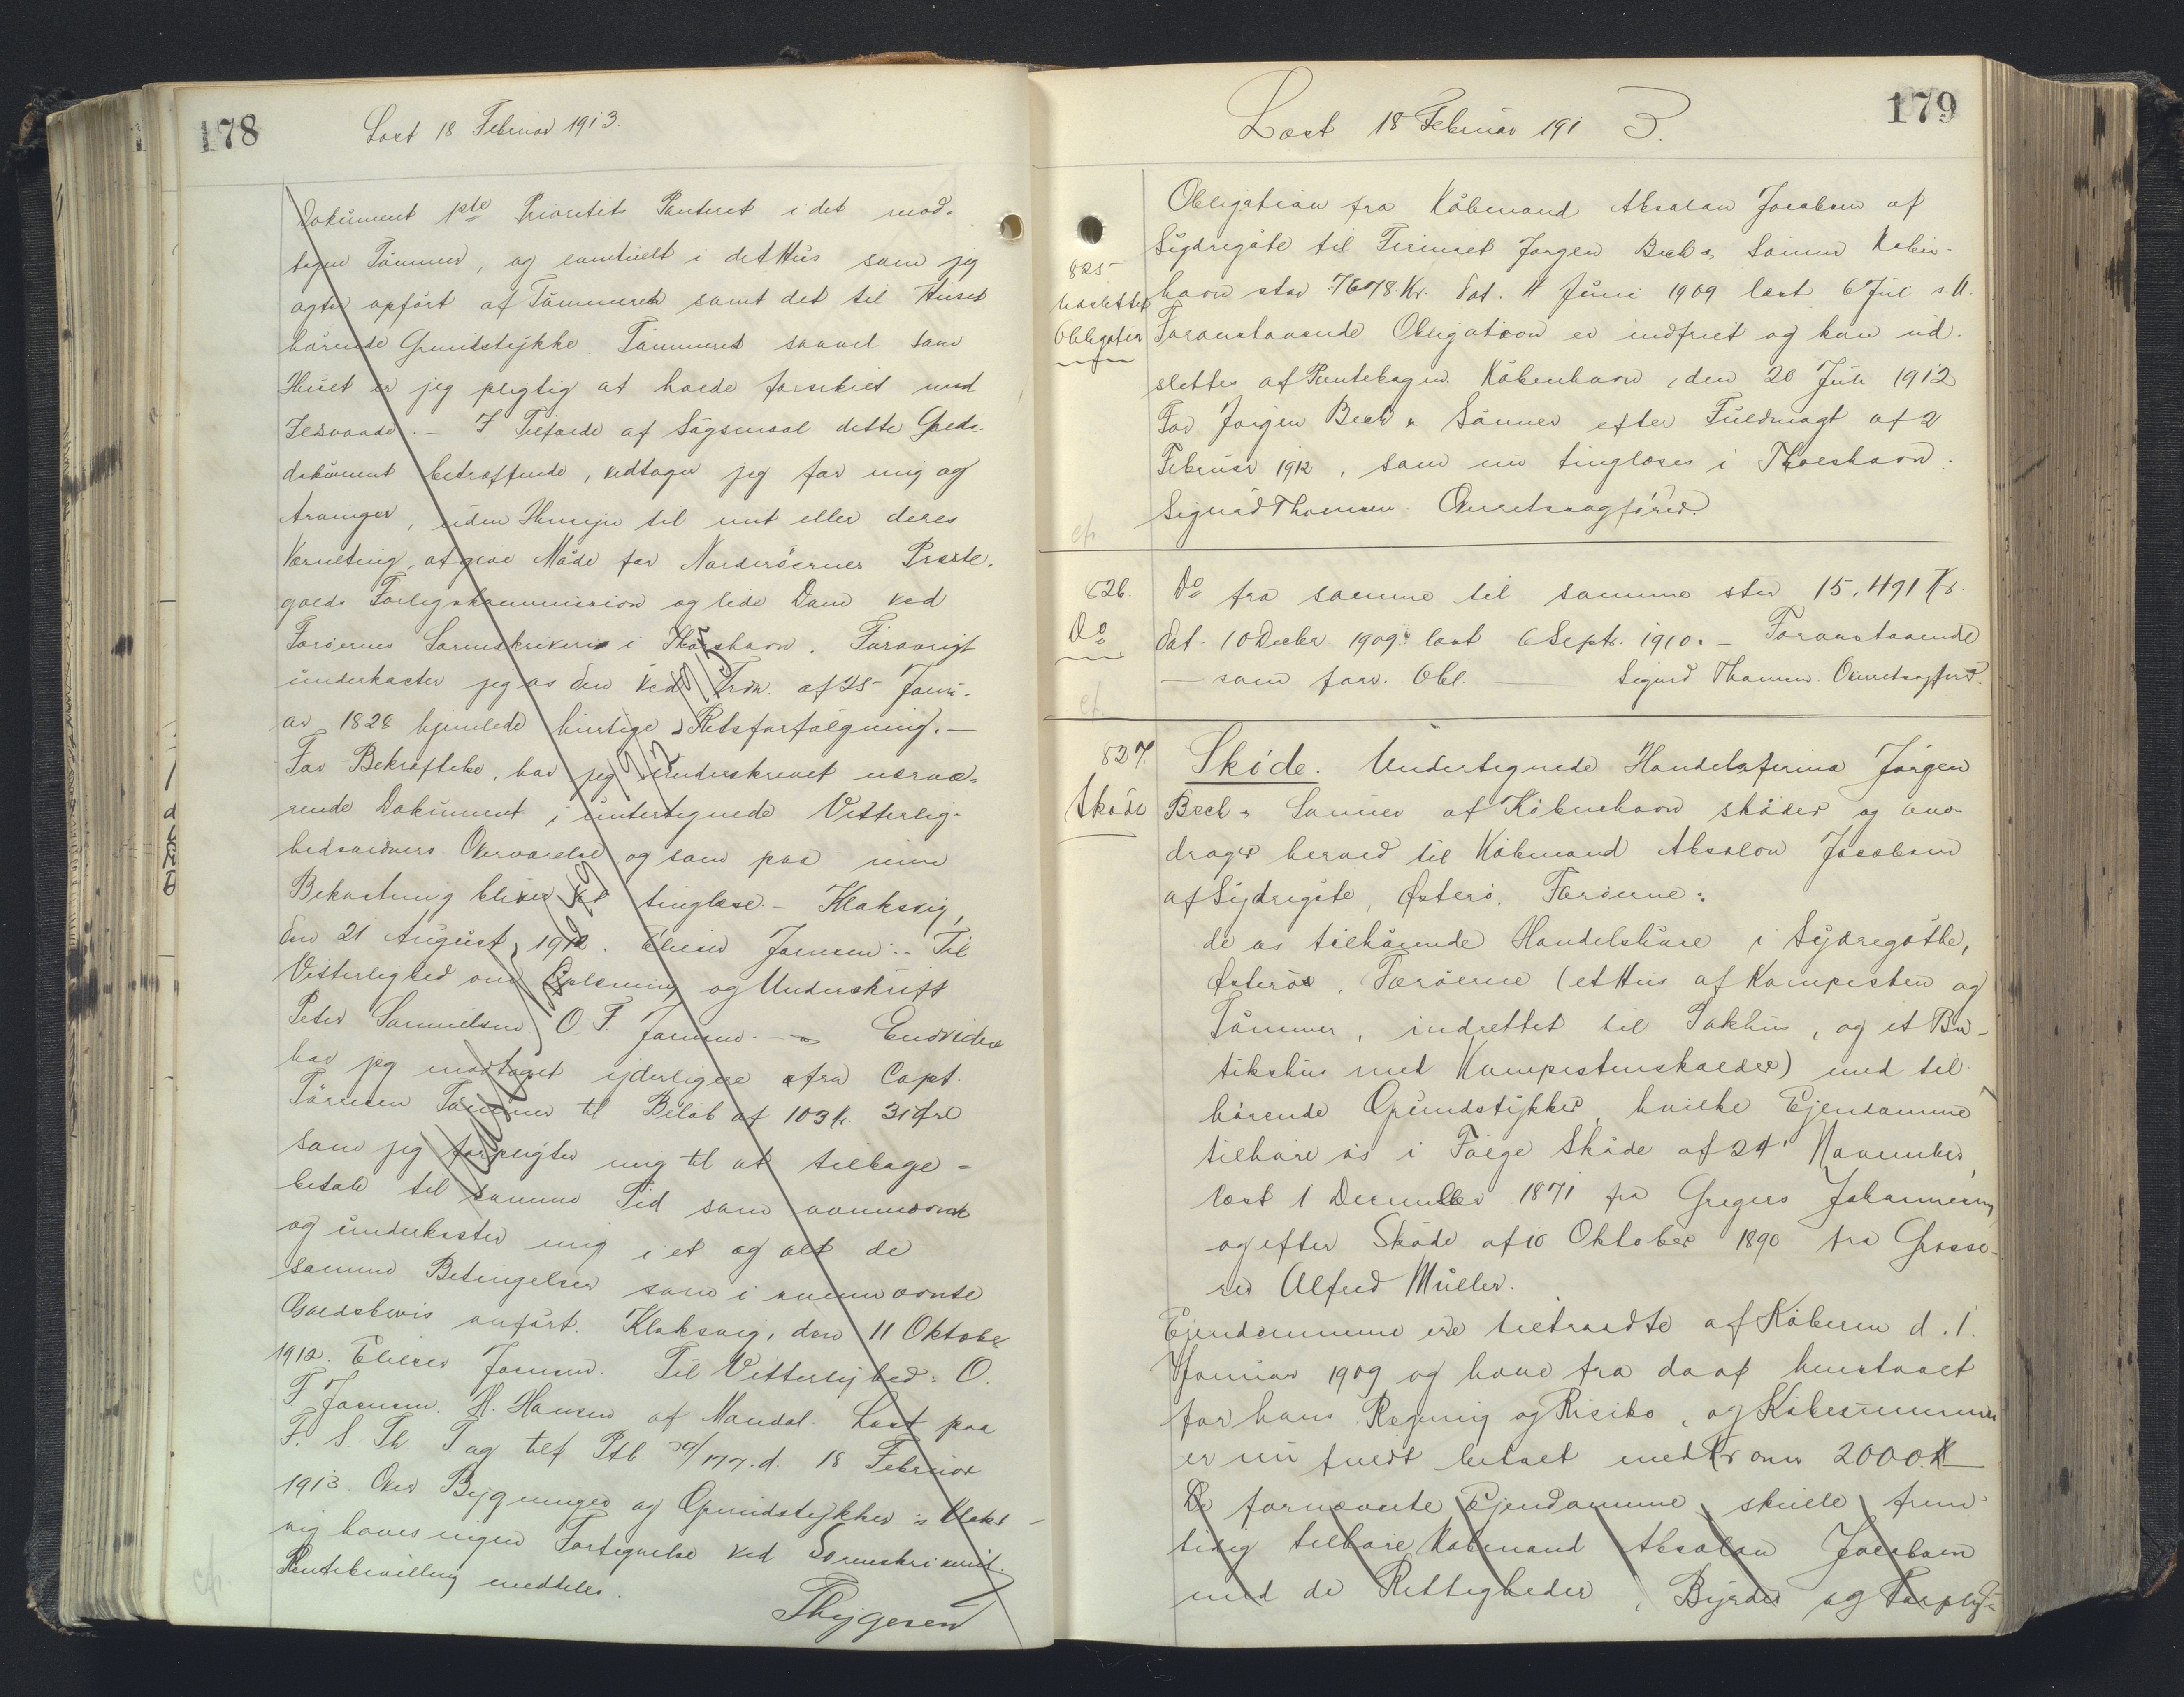 178
Læst 18 Februar 1913.
Dokument 1ste Prioritets Panteret i det mod-
tagne Tømmer, og eventuelt i det Hus som jeg
agter opført af Tømmeret samt det til Huset
hørende Grundstykke. Tømmeret saavel som
Huset er jeg pligtig at holde forsikret mod
Ildsvaade. – I Tilfælde af Søgsmaal dette Gælds-
dokument betræffende, vedtager jeg for mig og
Arvinger, uden Hensyn til mit eller deres
Værneting, at give Møde for Norderøernes Præste-
gælds Forligskommission og lide Dom ved
Færøernes Sorenskriveri i Thorshavn. Forøvrigt
underkaster jeg os den ved Frdn. af 25 Janu-
ar 1828 hjemlede hurtige Retsforfølgning. –
Til Bekræftelse, har jeg underskrevet nærvæ-
rende Dokument i undertegnede Vitterlig-
hedsvidners Overværelse og som paa min
Bekostning bliver at tinglæse. – Klaksvig,
den 21 August 1912. Elieser Joensen. – Til
Vitterlighed om Oplæsning og Underskrift
Peter Samuelsen, O. F. Joensen. – Endvidere
har jeg modtaget yderligere fra Capt.
Tømmer til Beløb af 103 Kr. 31 Øre
som jeg forpligter mig til at tilbage-
betale til samme Tid som ovennævnt
og underkaster mig i et og alt de
samme Betingelser som i ovennævnte
Gældsbevis anført. Klaksvig, den 11 Oktober
1912. Elieser Joensen. Til Vitterlighed: O.
F. Joensen. H. Hansen af Mandal. Læst paa
F. S. Th. T. og tilf Ptb d. 18 Februar
1913. Over Bygninger og Grundstykker i Klaks-
vig haves ingen Fortegnelse ved Sorenskriveriet.
meddeles.
Thygesen
179
Læst 18 Februar 1913.
825
Udslettet
Obligation
Obligation fra Købmand Absalon Jacobsen af
Sydregøte til Firmaet Jørgen Bech & Sønner Køben-
havn stor 7678 Kr. dat. 11 Juni 1909 læst 6 Juli s. A.
Foranstaaende Obligation er indfriet og kan ud-
slettes af Pantebogen. København, den 20 Juli 1912
For Jørgen Bech & Sønner efter Fuldmagt af 2
Februar 1912, som nu tinglæses i Thorshavn.
Sigurd Thomsen Overretssagfører.
826.
Do
Do fra samme til samme stor 15.491 Kr.
dat. 10 Decbr 1909 læst 6 Septr. 1910. – Foranstaaende
– som forr. Obl. – Sigurd Thomsen Overretssagførd.
827.
Skøde
Skøde. Undertegnede Handelsfirma Jørgen
Bech & Sønner af København skøder og over-
drager herved til Købmand Absalon Jacobsen
af Sydregøte, Østerø, Færøerne:
de os tilhørende Handelshuse i Sydregøthe,
Østerø, Færøerne (et Hus af Kampesten og
Tømmer, indrettet til Pakhus, og et Bu-
tikshus med Kampestenskælder) med til-
hørende Grundstykker, hvilke Ejendomme
tilhøre os i Følge Skøde af 24' November,
læst 1 December 1871 fra Gregers Johannesen
og efter Skøde af 10 Oktober 1890 fra Grosse-
rer Alfred Müller.
Ejendommene ere tiltraadte af Køberen d. 1.
Januar 1909 og have fra da af henstaaet
for hans Regning og Risiko, og Købesummen
er nu fuldt betalt med Kr 2000 K
De fornævnte Ejendomme skulle frem-
tidig tilhøre Købmand Absalon Jacobsen
med de Rettigheder, Byrder og Forplig-